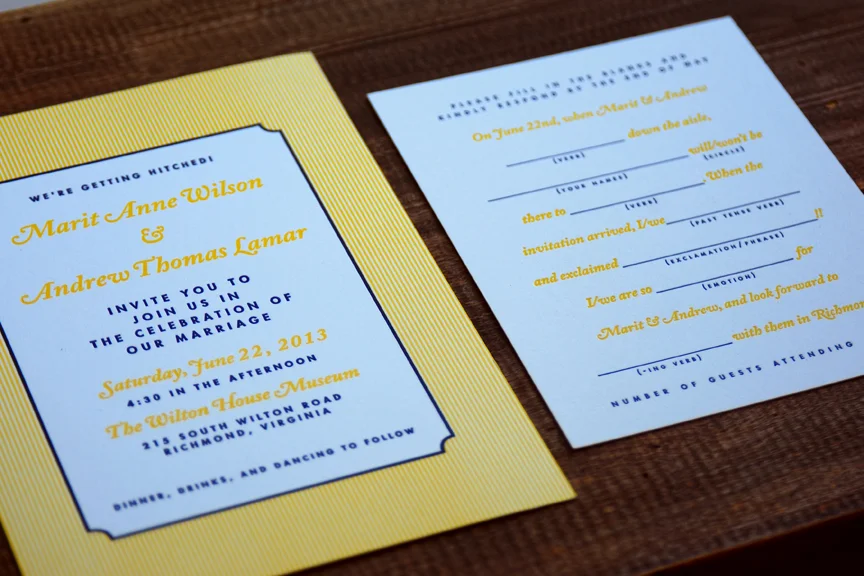 WE'RE GETTING HITCHED!
Marit Anne Wilson
&
Andrew Thomas Lamar
INVITE YOU TO
JOIN US IN
THE CELEBRATION OF
OUR MARRIAGE
Saturday, June 22, 2013
4:30 IN THE AFTERNOON
The Wilton House Museum
215 SOUTH WILTON ROAD
RICHMOND, VIRGINIA
DINNER, DRINKS, AND DANCING TO FOLLOW
PLEASE FILL IN THE BLANKS AND
KINDLY RESPOND BY THE END OF MAY
On June 22nd, when Marit & Andrew
down the aisle,
(VERB)
will/won't be
(YOUR NAMES) (CIRCLE)
there to . When the
(VERB)
invitation arrived, I/we
(PAST TENSE VERB)
and exclaimed !!
(EXCLAMATION/PHRASE)
I/we are so for
(EMOTION)
Marit & Andrew, and look forward to
with them in Richmon
(-ING VERB)
NUMBER OF GUESTS ATTENDING